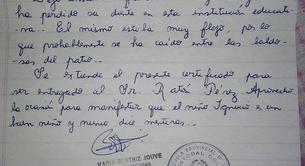 ha perdido su diente en esta institución educati-
va.. El mismo estaba muy flojo, por lo
que probablemente se ha caído entre las baldo-
sas del patio..
Se extiende el presente certificado para
ser entregado al Sr. Ratón Pérez. Aprovecho
la ocasión para manifestar que el niño Ignacio es un
buen niño y nunca dice mentiras..
MARIA BEATRIZ JOUVE